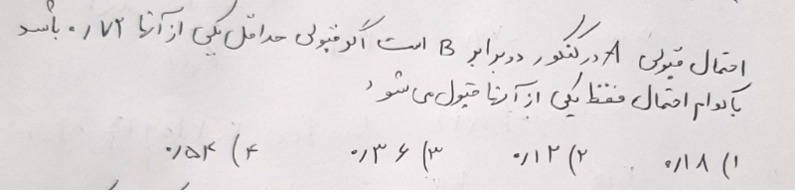 احتمال قبولی A در کنکور دو برابر B است اگر قبولی حداقل یکی از آنها ۰/۷۲ باشد
با کدام احتمال فقط یکی از آنها قبول می شود؟
۱) ۰/۱۸ ۲) ۰/۱۲ ۳) ۰/۳۶ ۴) ۰/۵۴